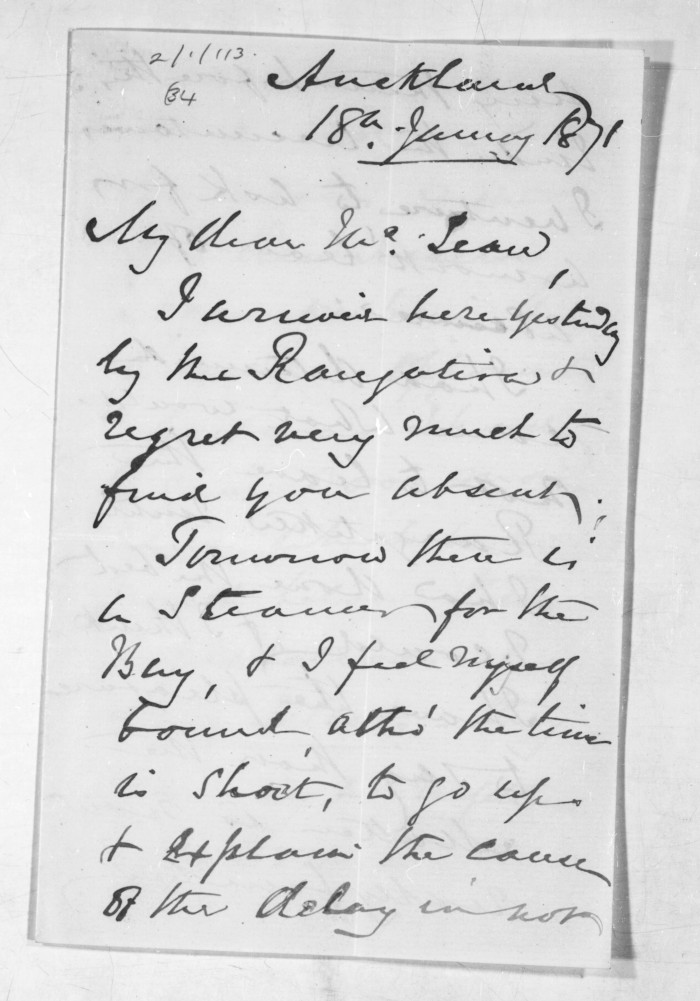 2/1/113.
84
Auckland
18th January 1871
My dear Mc. Lean,
I arrived here yesterday
by the Rangatira &
regret very much to
find you absent.
Tomorrow there is
a Steamer for the
Bay, & I feel myself
bound, altho' the time
is short, to go up
& explain the cause
of the delay in not